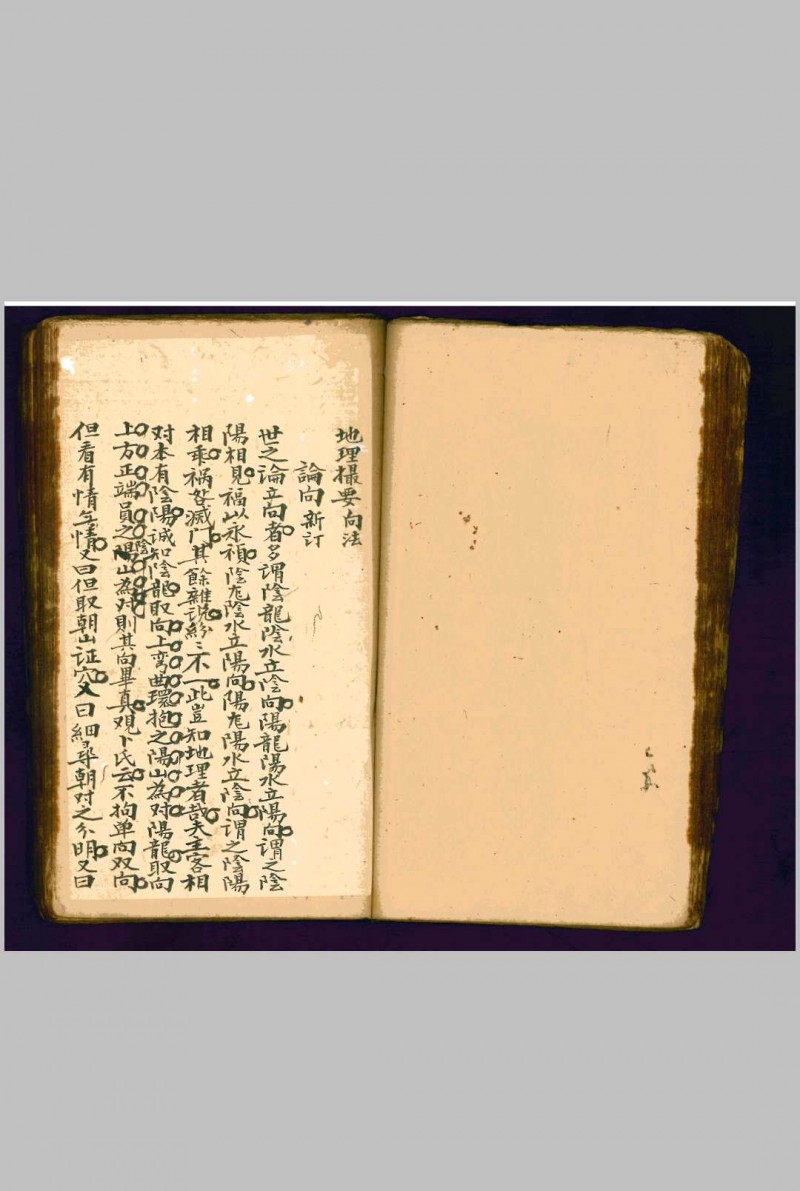 地理撮要向法
論向 新訂
世之論立向者多谓陰龍陰水立陰向陽龍陽水立陽向谓之陰
陽相見福以永禎陰尨陰水立陽向陽尨陽水立陰向谓之陰陽
相乖祸咎滅門其餘雜说紛〻不一此豈知地理者哉夫主客相
对本有陰陽诚知陰龍取向上弯曲環抱之陽山為对陽龍取向
上方正端員之陰山為对則其向畢真观卜氏云不拘单向双向
但看有情无情又曰但取朝山证穴又曰細尋朝对之分明又曰